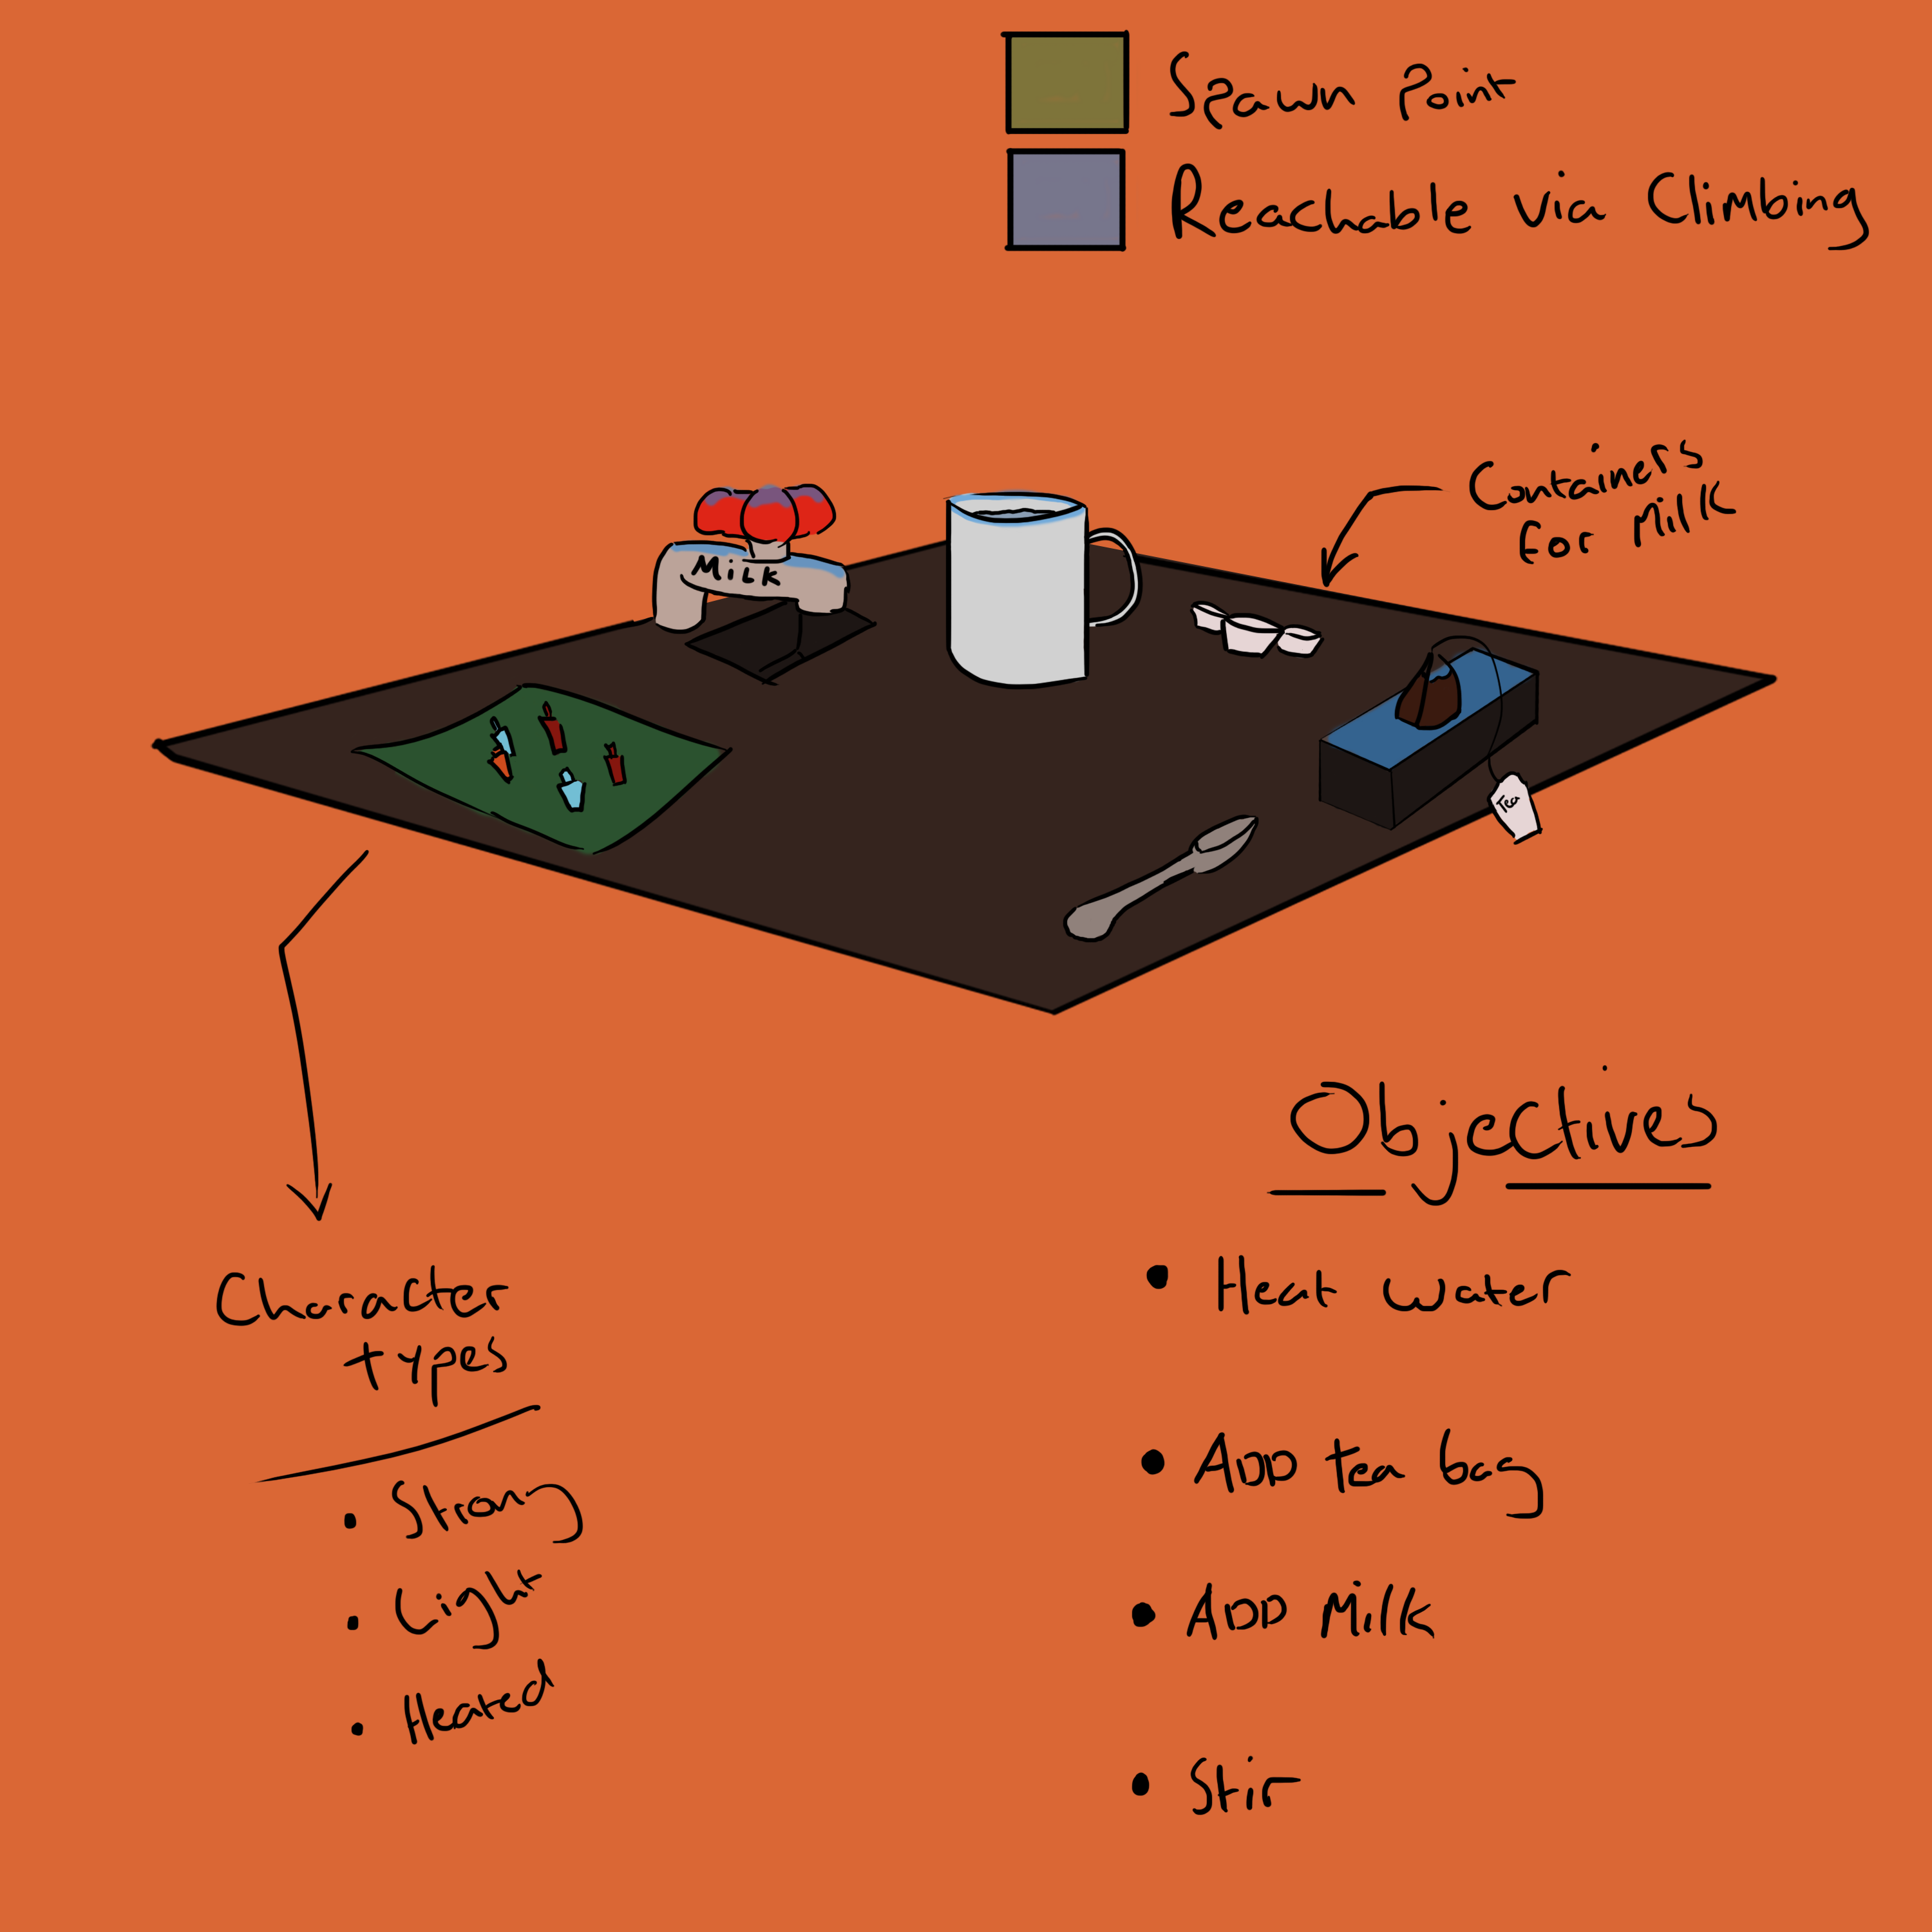 Spawn Point
Reachable via Climbing
Containers
for milk
Milk
Tea
Character
types
• Strong
• Light
• Heated
Objectives
• Heat water
• ADD tea bag
• ADD Milk
• Stir